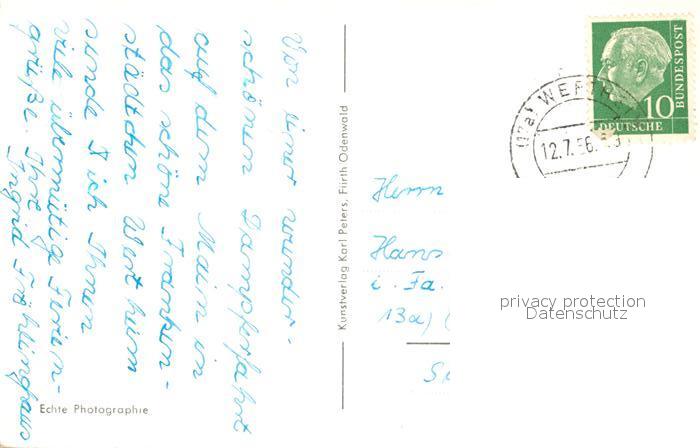 Von einer wunder-
schönen Dampferfahrt
auf dem Main in
das schöne Franken-
städtchen Wertheim
sende ich Ihnen
viele übermütige Ferien-
grüße. Ihre
Ingrid Fröhlinghaus
Echte Photographie
Kunstverlag Karl Peters, Fürth Odenwald
10
DEUTSCHE
BUNDESPOST
(17a) WERTH
12.7.56.
Herrn
Hans
i. Fa.
13a) (
privacy protection
Datenschutz